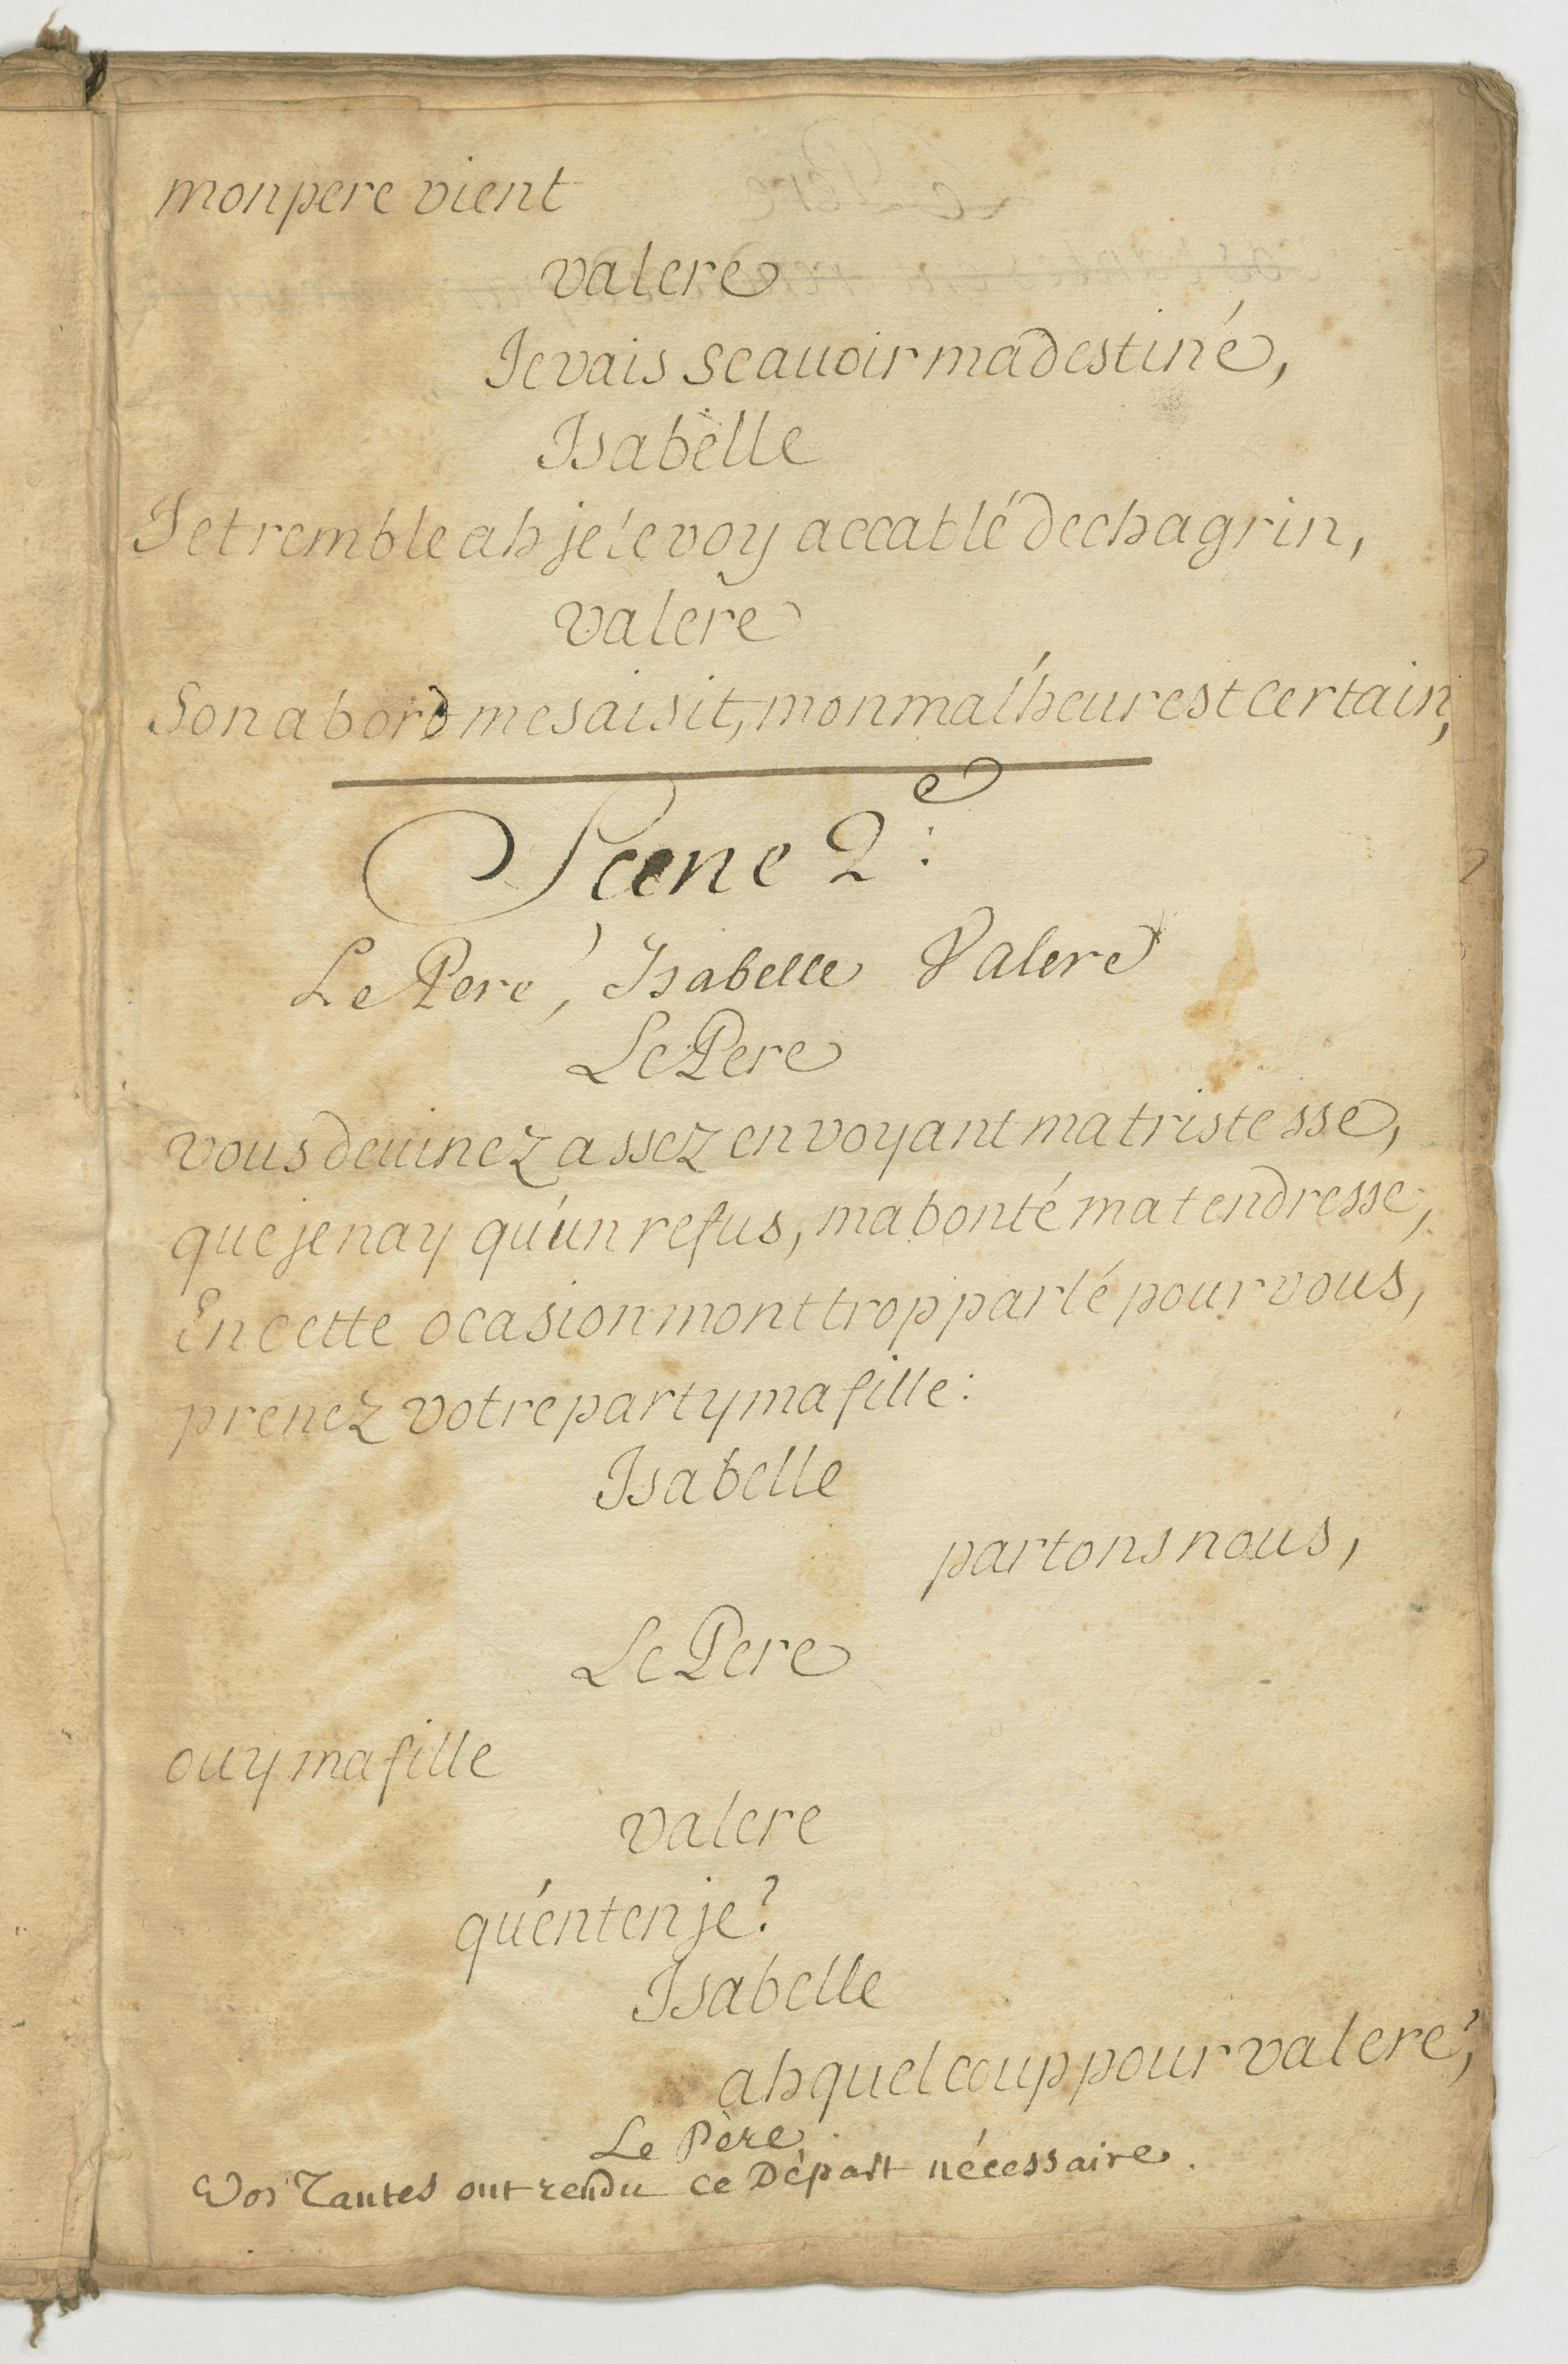 mon pere vient
valere
Je vais scauoir ma destiné,
Isabelle
Je tremble ah je le voy accablé de chagrin,
valere
Son abord me saisit, mon malheur est certain,
Scene 2e:
Le Pere, Isabelle Valere
Le Pere
vous deuinez assez en voyant ma tristesse,
que je nay qu'un refus, ma bonté ma tendresse,
En cette ocasion mont trop parlé pour vous,
prenez votre party ma fille:
Isabelle
partons nous,
Le Pere
ouy ma fille
valere
qu'enten je?
Isabelle
ah quel coup pour valere,
Le Père
Vos Tantes ont rendu ce Départ nécessaire.